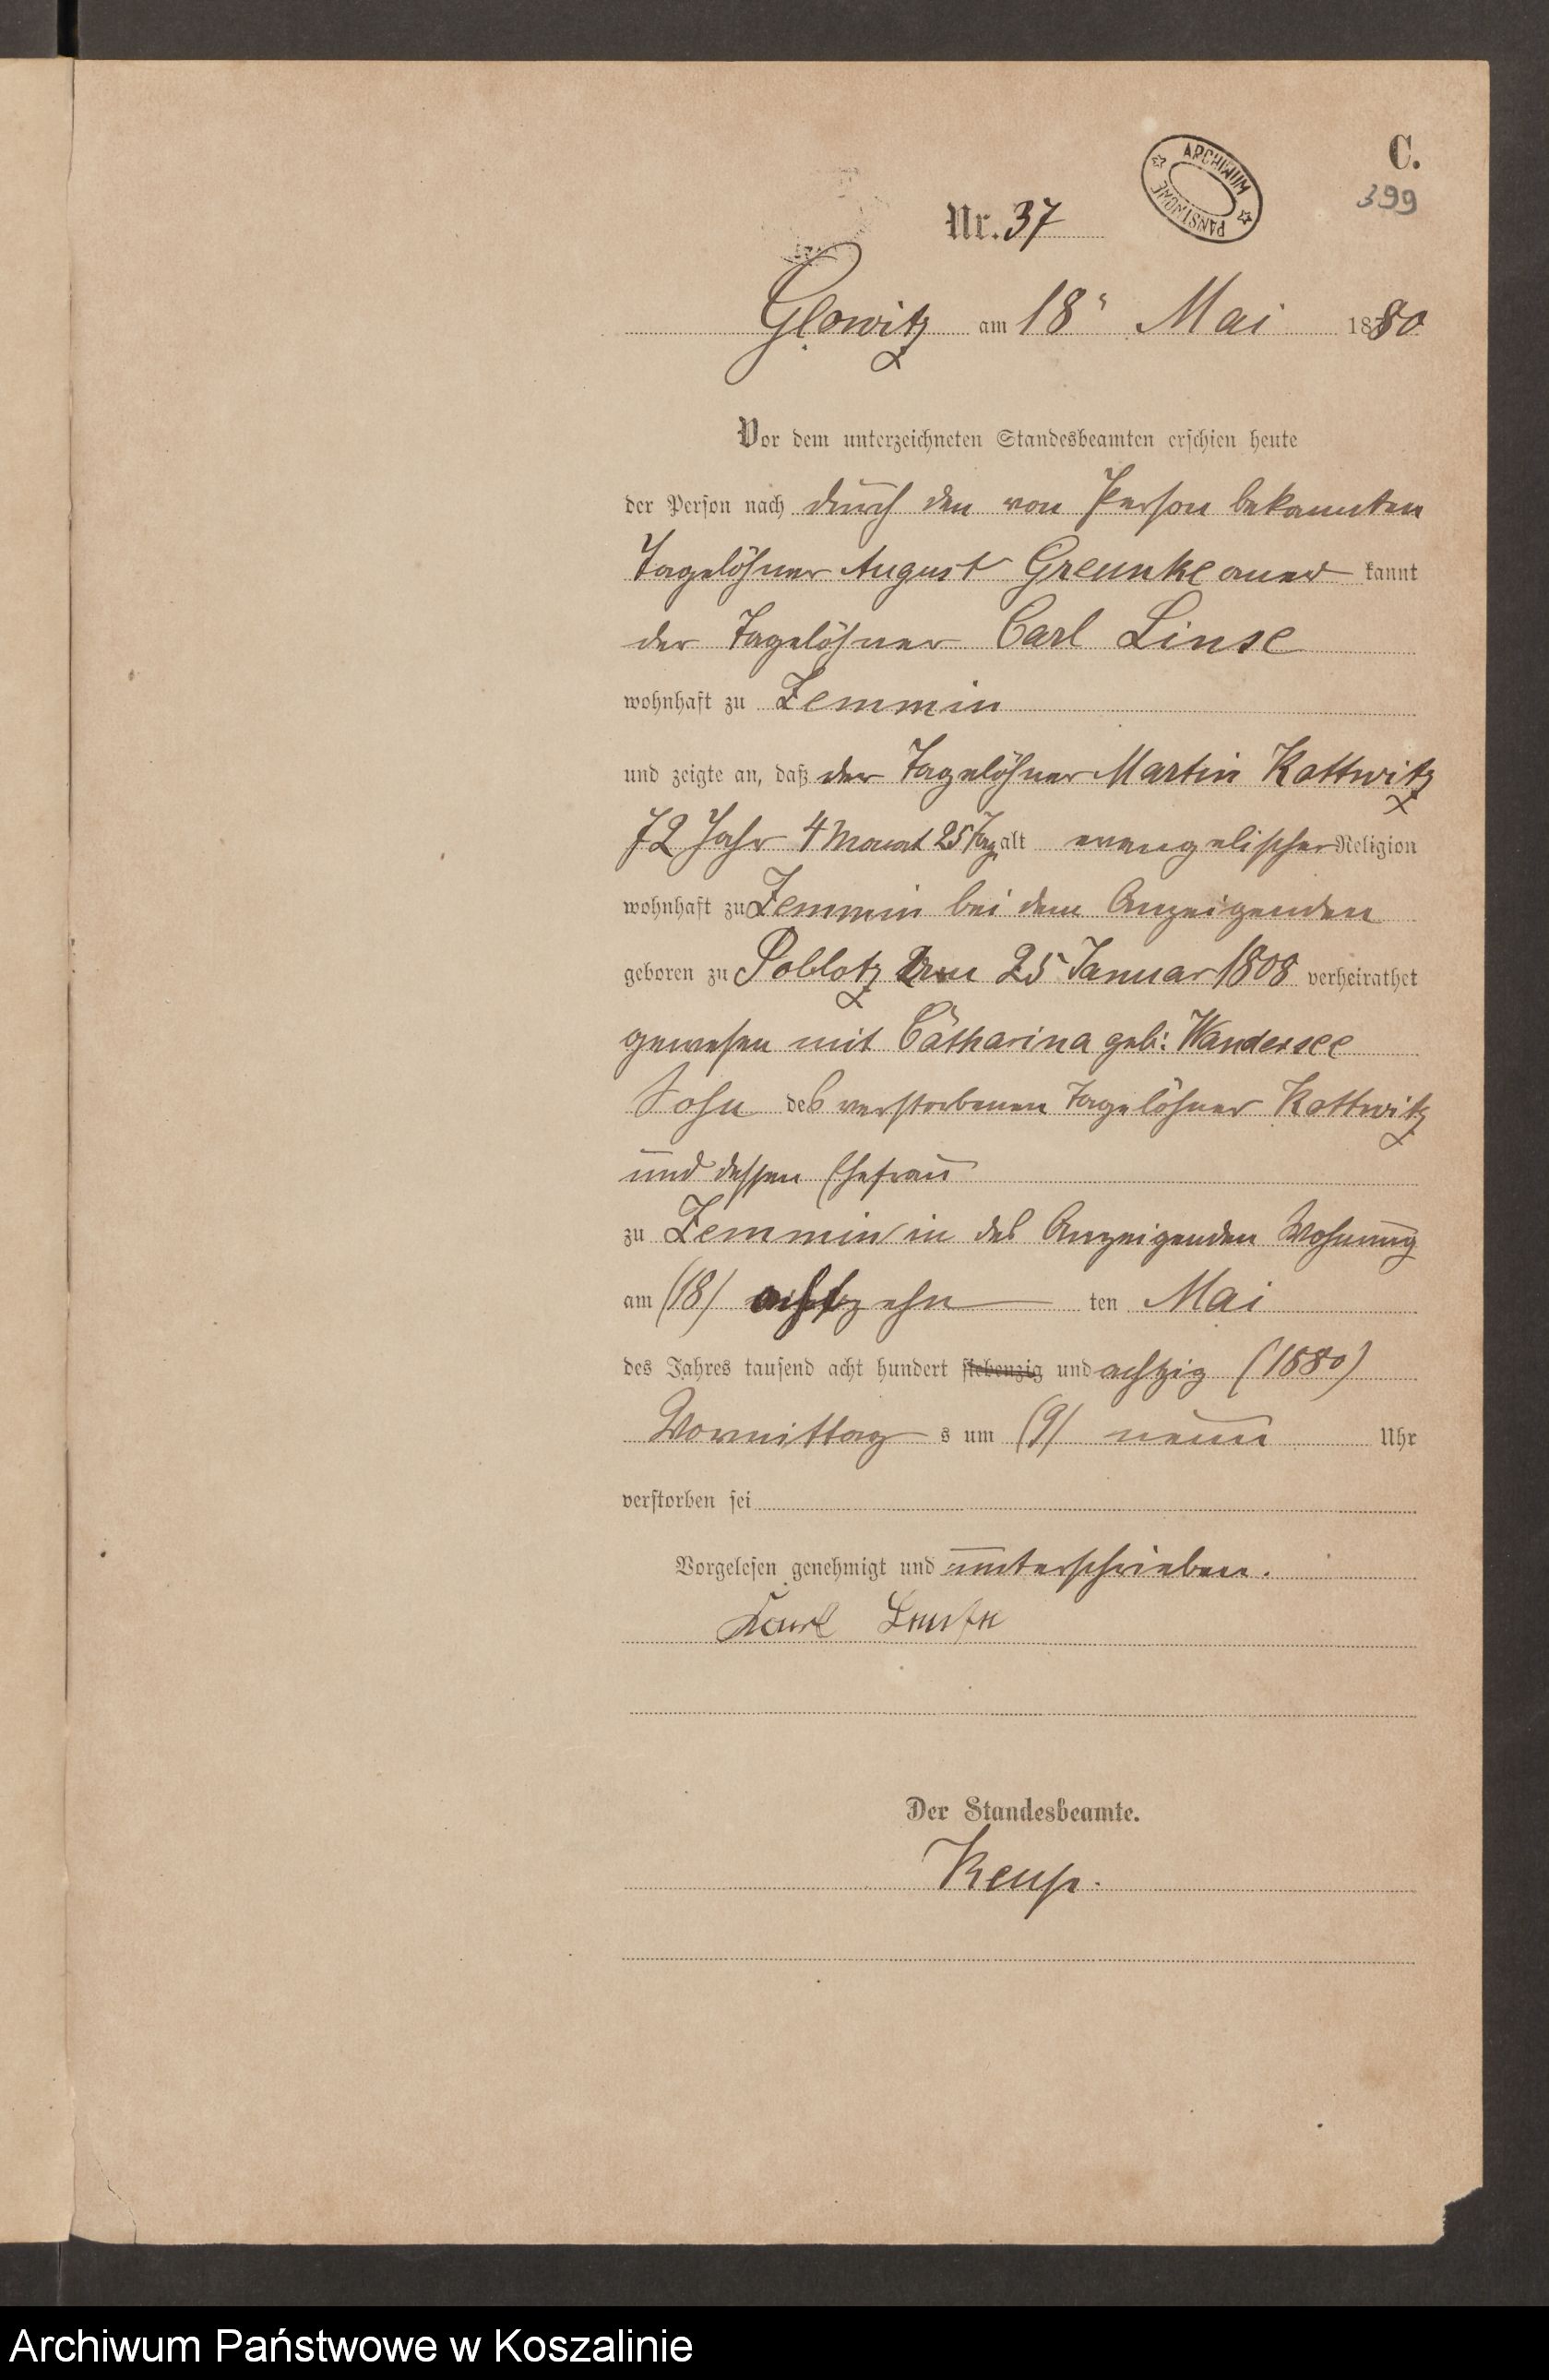 C.
ARCHIWUM PAŃSTWOWE
399
Nr. 37
Glowitz am 18ⁿ Mai 1880
Vor dem unterzeichneten Standesbeamten erschien heute
der Person nach durch den von Person bekannten
Tagelöhner August Greunke aner kannt
der Tagelöhner Carl Linse
wohnhaft zu Zemmin
und zeigte an, daß der Tagelöhner Martin Kattwitz
72 Jahr 4 Monat 25 Tag alt evangelischer Religion
wohnhaft zu Zemmin bei dem Anzeigenden
geboren zu Poblotz den 25 Januar 1808 verheirathet
gewesen mit Catharina geb: Wandersee
Sohn des verstorbenen Tagelöhner Kattwitz
und dessen Ehefrau
zu Zemmin in des Anzeigenden Wohnung
am (18) achtzehn ten Mai
des Jahres tausend acht hundert siebenzig und achtzig (1880)
Vormittag s um (9) neun Uhr
verstorben sei
Vorgelesen genehmigt und unterschrieben.
Karl
Der Standesbeamte.
Archiwum Państwowe w Koszalinie